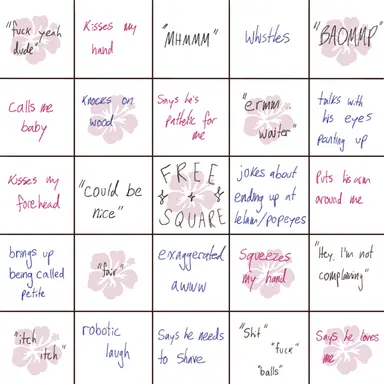 "fuck yeah
dude"
Kisses my
hand
"MHMMM"
Whistles
"BAOMMP"
Calls me
baby
Knocks on
wood
Says he's
pathetic for
me
"ermm
waiter"
talks with
his eyes
panting up
Kisses my
forehead
"could be
nice"
FREE
&
SQUARE
jokes about
ending up at
lelam/popeyes
Puts his arm
around me
brings up
being called
petite
"fair"
exaggerated
awww
Squeezes
my hand
"Hey, I'm not
complaining"
"itch
itch"
robotic
laugh
Says he needs
to shave
"Shit"
"fuck"
"balls"
Says he loves
me